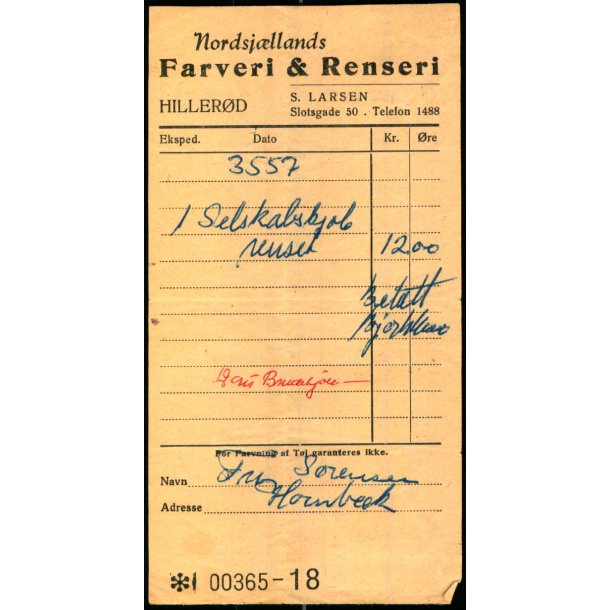 Nordsjællands
Farveri & Renseri
HILLERØD
S. LARSEN
Slotsgade 50 . Telefon 1488
Eksped. Dato Kr. Øre
3557
1 Selskabskjole
renset 12.00
Betalt
For Farvning af Tøj garanteres ikke.
Navn Fru Sørensen
Adresse Hornbæk
✻1 00365-18